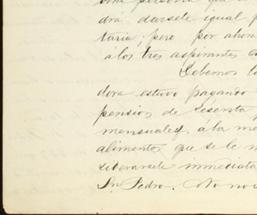 una persona que
drá dársele igual
taria, pero por ahora
á los tres aspirantes
Debemos
dera estuvo pagando
pensión de sesenta
mensuales, á la
alimentos que se le
liberársele inmediata
Sn. Pedro. No